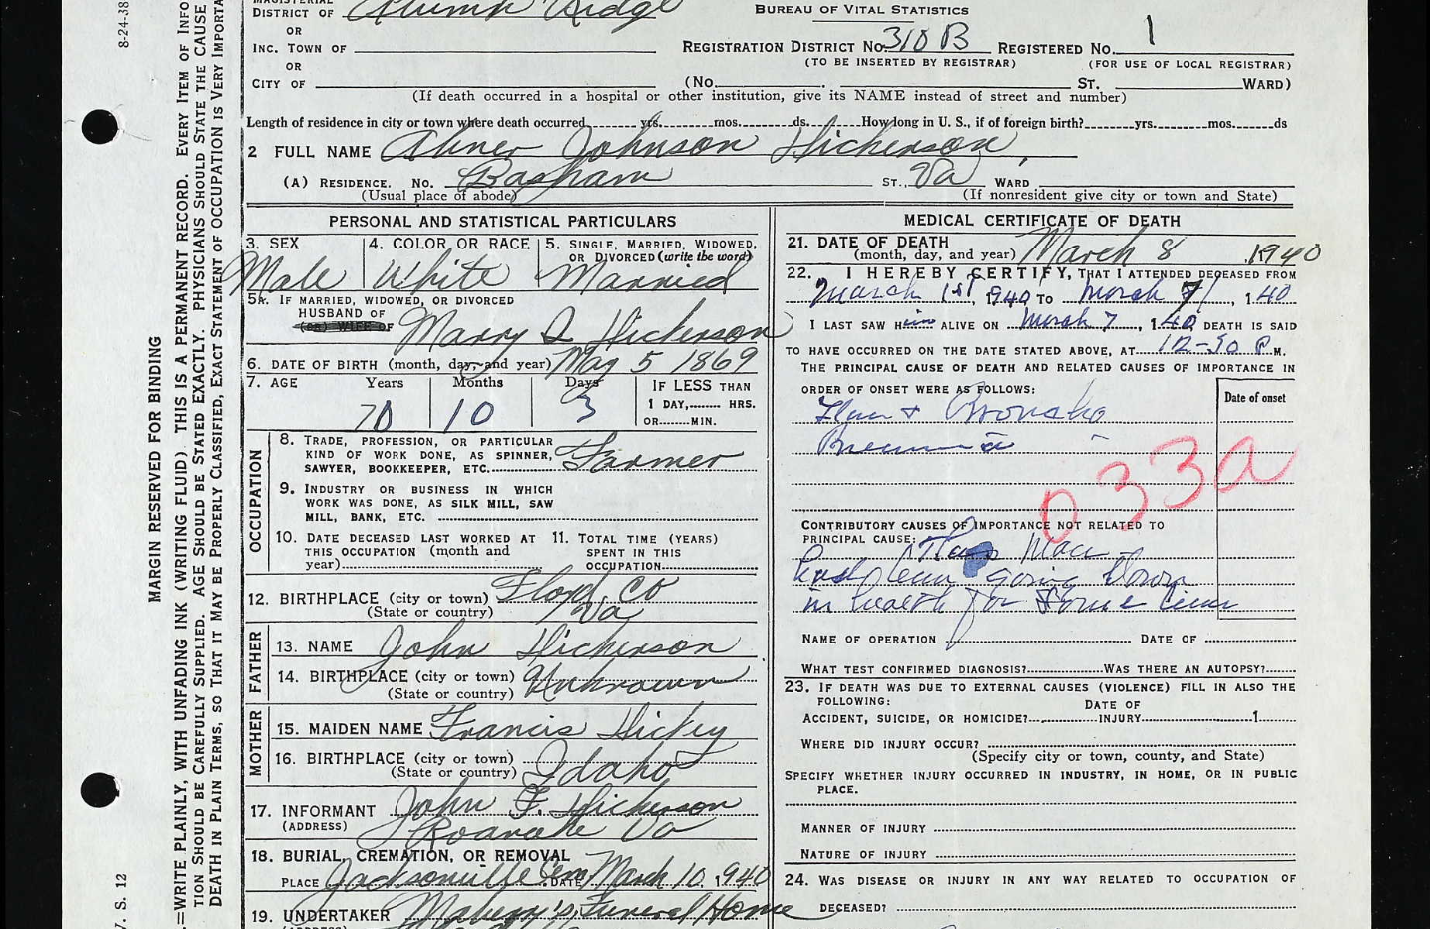 8-24-38
MARGIN RESERVED FOR BINDING
.=WRITE PLAINLY, WITH UNFADING INK (WRITING FLUID). THIS IS A PERMANENT RECORD. EVERY ITEM OF INFO
TION SHOULD BE CAREFULLY SUPPLIED. AGE SHOULD BE STATED EXACTLY. PHYSICIANS SHOULD STATE THE CAUSE
DEATH IN PLAIN TERMS, SO THAT IT MAY BE PROPERLY CLASSIFIED, EXACT STATEMENT OF OCCUPATION IS VERY IMPORTA
V. S. 12
DISTRICT OF Alumn Ridge
BUREAU OF VITAL STATISTICS
OR
INC. TOWN OF
REGISTRATION DISTRICT No. 310 B REGISTERED No. 1
(TO BE INSERTED BY REGISTRAR) (FOR USE OF LOCAL REGISTRAR)
OR
CITY OF (No. ST. WARD)
(If death occurred in a hospital or other institution, give its NAME instead of street and number)
Length of residence in city or town where death occurred yrs. mos. ds. How long in U. S., if of foreign birth? yrs. mos. ds
2 FULL NAME Abner Johnson Hickerson
(A) RESIDENCE. No. Basham ST., Va WARD
(Usual place of abode) (If nonresident give city or town and State)
PERSONAL AND STATISTICAL PARTICULARS
3. SEX 4. COLOR OR RACE 5. SINGLE, MARRIED, WIDOWED,
OR DIVORCED (write the word)
Male White Married
5A. IF MARRIED, WIDOWED, OR DIVORCED
HUSBAND OF
(OR) WIFE OF Marry I. Hickerson
6. DATE OF BIRTH (month, day, and year) May 5 1869
7. AGE Years Months Days IF LESS THAN
1 DAY, HRS.
70 10 3 OR MIN.
OCCUPATION
8. TRADE, PROFESSION, OR PARTICULAR
KIND OF WORK DONE, AS SPINNER,
SAWYER, BOOKKEEPER, ETC. Farmer
9. INDUSTRY OR BUSINESS IN WHICH
WORK WAS DONE, AS SILK MILL, SAW
MILL, BANK, ETC.
10. DATE DECEASED LAST WORKED AT 11. TOTAL TIME (YEARS)
THIS OCCUPATION (month and SPENT IN THIS
year) OCCUPATION
12. BIRTHPLACE (city or town) Floyd Co
(State or country) Va
FATHER
13. NAME John Hickerson
14. BIRTHPLACE (city or town) Unknown
(State or country)
MOTHER
15. MAIDEN NAME Francis Hickey
16. BIRTHPLACE (city or town)
(State or country) Idaho
17. INFORMANT John F. Hickerson
(ADDRESS) Roanoke Va
18. BURIAL, CREMATION, OR REMOVAL
PLACE Jacksonville Cem. DATE March 10, 1940
19. UNDERTAKER Funeral Home
MEDICAL CERTIFICATE OF DEATH
21. DATE OF DEATH
(month, day, and year) March 8, 1940
22. I HEREBY CERTIFY, THAT I ATTENDED DECEASED FROM
March 1st, 1940 TO March 7, 1940
I LAST SAW Him ALIVE ON March 7, 1940 DEATH IS SAID
TO HAVE OCCURRED ON THE DATE STATED ABOVE, AT 12-30 P.M.
THE PRINCIPAL CAUSE OF DEATH AND RELATED CAUSES OF IMPORTANCE IN
ORDER OF ONSET WERE AS FOLLOWS: Date of onset
Flu + Broncho
Pneumonia
033a
CONTRIBUTORY CAUSES OF IMPORTANCE NOT RELATED TO
PRINCIPAL CAUSE: This man
had been going down
in health for some time
NAME OF OPERATION DATE OF
WHAT TEST CONFIRMED DIAGNOSIS? WAS THERE AN AUTOPSY?
23. IF DEATH WAS DUE TO EXTERNAL CAUSES (VIOLENCE) FILL IN ALSO THE
FOLLOWING: DATE OF
ACCIDENT, SUICIDE, OR HOMICIDE? INJURY 1
WHERE DID INJURY OCCUR?
(Specify city or town, county, and State)
SPECIFY WHETHER INJURY OCCURRED IN INDUSTRY, IN HOME, OR IN PUBLIC
PLACE.
MANNER OF INJURY
NATURE OF INJURY
24. WAS DISEASE OR INJURY IN ANY WAY RELATED TO OCCUPATION OF
DECEASED?